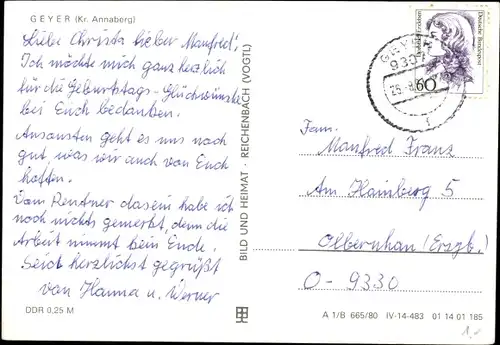 GEYER (Kr. Annaberg)
Liebe Christa lieber Manfred!
Ich möchte mich ganz herzlich
für die Geburtstags-Glückwünsche
bei Euch bedanken.
Ansonsten geht es uns noch
gut, was wir auch von Euch
hoffen.
Vom Rentner dasein habe ich
noch nichts gemerkt, denn die
Arbeit nimmt kein Ende.
Seid herzlichst gegrüßt
von Hanna u. Werner
DDR 0,25 M
BILD UND HEIMAT · REICHENBACH (VOGTL)
Deutsche Bundespost
60
GEYER
9307
Fam.
Manfred Franz
Am Hainberg 5
Olbernhau (Erzgb.)
O-9330
A 1/B 665/80 IV-14-483 01 14 01 185